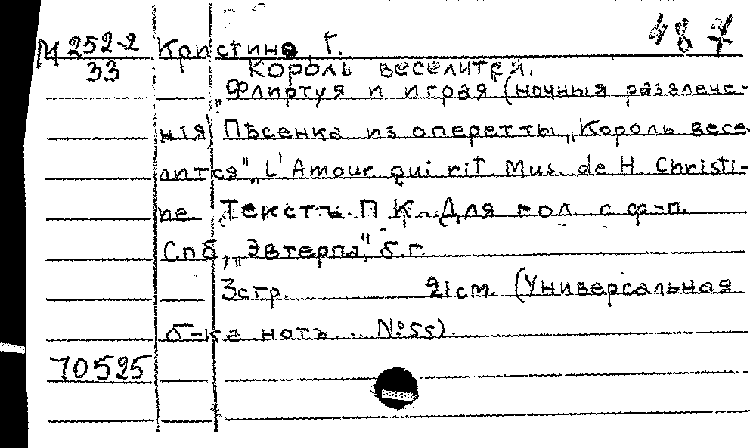 487
М 252-2 Кристинэ, Г.
33 Король веселится.
„Флиртуя и играя (ночныя развлече-
нія) Пѣсенка из оперетты „Король весе
лится" „L'Amour qui rit Mus. de H. Christi-
ne Текстъ П К. Для гол. с ф-п.
Спб, „Эвтерпа", б.г.
3стр. 21см. (Универсальная
б-ка нотъ... №55).
70525